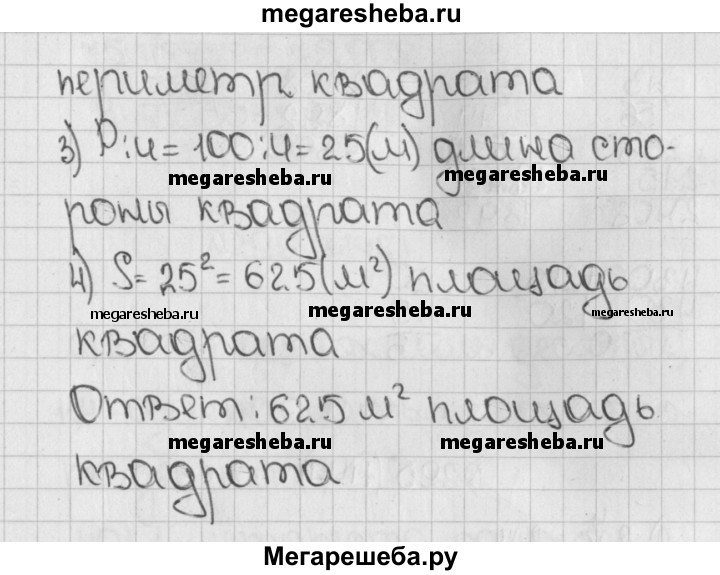 megaresheba.ru
периметр квадрата
3) P:4=100:4=25(м) длина сто-
megaresheba.ru megaresheba.ru
роны квадрата
4) S=25²=625(м²) площадь
megaresheba.ru megaresheba.ru megaresheba.ru
квадрата
Ответ: 625 м² площадь
megaresheba.ru megaresheba.ru
квадрата
Мегарешеба.ру